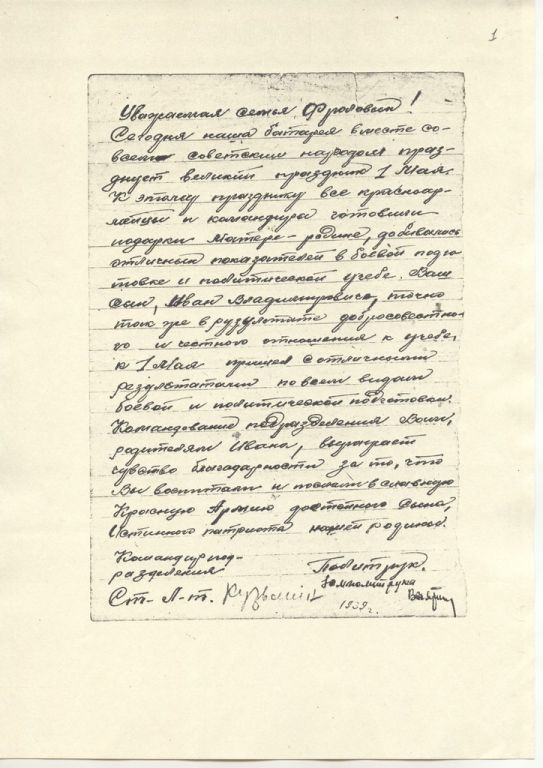 1
Уважаемая семья Фроловых!
Сегодня наша батарея вместе со-
всем советским народом праз-
днует великий праздник 1 Мая.
К этому празднику все красноар-
мейцы и командиры готовили
подарки Матери-родине, добивались
отличных показателей в боевой подго
товке и политической учебе. Ваш
сын, Иван Владимирович, точно
так же в рузультате добросовестно-
го и честного отношения к учебе,
к 1 Мая пришел с отличными
результатами по всем видам
боевой и политической подготовки.
Командование подразделения Вам,
родителям Ивана, выражает
чувство благодарности за то, что
Вы воспитали и послали в славную
Красную Армию достойного сына,
истинного патриота нашей родины.
Командир под-
разделения
Ст. Л-т. Кузьмин
Политрук.
Зам политрука
1939 г.